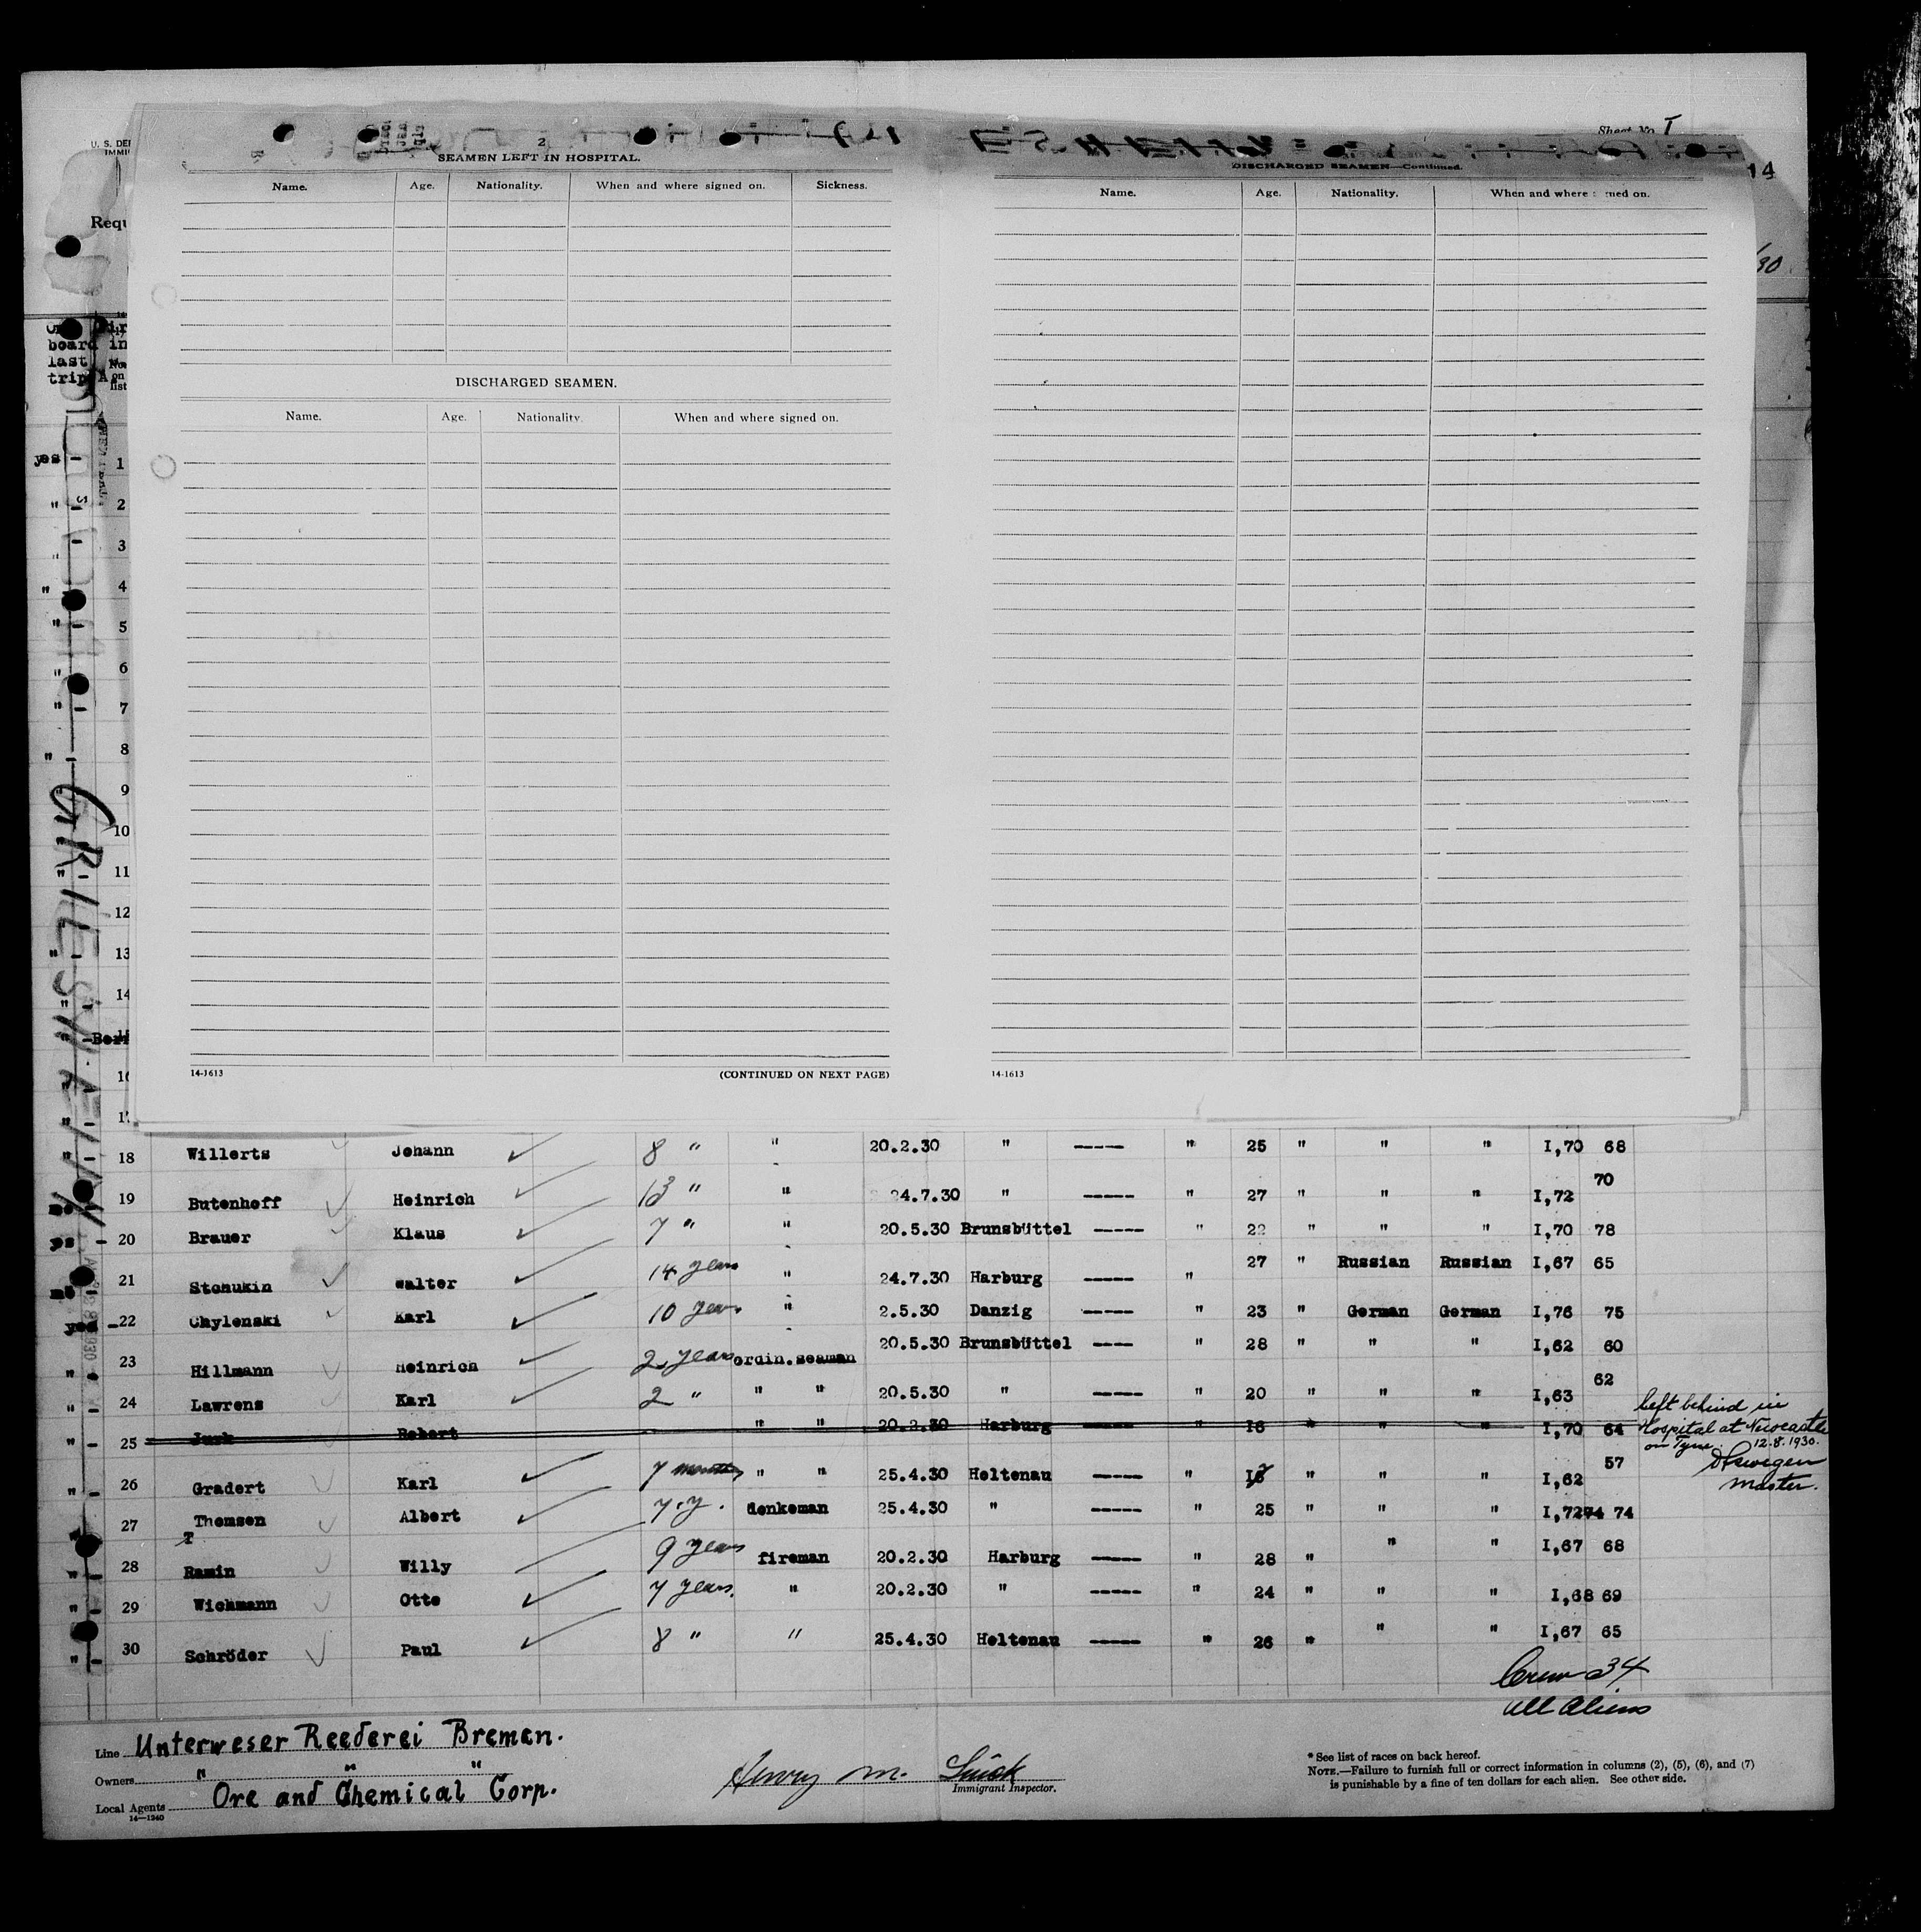 Sheet No. I
U. S. DEP
IMMI
14
2
SEAMEN LEFT IN HOSPITAL.
DISCHARGED SEAMEN—Continued.
Name. Age. Nationality. When and where signed on. Sickness.
Name. Age. Nationality. When and where signed on.
Requ
/30
board in
last
trip
No. on list
DISCHARGED SEAMEN.
Name. Age. Nationality. When and where signed on.
yes - 1
" - 2
" - 3
" 4
" - 5
" - 6
" - 7
" 8
9
10
" - 11
12
" - 13
" - 14
" -
14-1613 (CONTINUED ON NEXT PAGE)
14-1613
GRIESHEIM
" - 18 Willerts Johann 8 " " 20.2.30 " ---- " 25 " " " I,70 68
no 19 Butenhoff Heinrich 13 " " 24.7.30 " ----- " 27 " " " I,72 70
yes - 20 Brauer Klaus 7 " " 20.5.30 Brunsbüttel ---- " 22 " " " I,70 78
no 21 Stchukin Walter 14 years " 24.7.30 Harburg ---- " 27 " Russian Russian I,67 65
yes - 22 Chylenski Karl 10 years " 2.5.30 Danzig ---- " 23 " German German I,76 75
" - 23 Hillmann Heinrich 2 years ordin.seaman 20.5.30 Brunsbüttel ---- " 28 " " " I,62 60
" - 24 Lawrens Karl 2 " " " 20.5.30 " ---- " 20 " " " I,63 62
" - 25 Jurk Robert " " 20.2.30 Harburg ---- 16 " " " I,70 64
left behind in
Hospital at Newcastle
on Tyne. 12.8.1930.
Master.
" - 26 Gradert Karl 7 months " " 25.4.30 Holtenau ---- " " " " I,62 57
27 Thomsen Albert 7.y. donkeman 25.4.30 " ---- " 25 " " " I,72 74 74
" - 28 Ramin Willy 9 years fireman 20.2.30 Harburg ---- " 28 " " " I,67 68
" - 29 Wichmann Otto 7 years. " 20.2.30 " ---- " 24 " " " I,68 69
" - 30 Schröder Paul 8 " " 25.4.30 Holtenau ---- " 26 " " " I,67 65
Crew 34
all Aliens
Line Unterweser Reederei Bremen.
Owners " " "
Local Agents Ore and Chemical Corp.
14—1240
Henry M.
Immigrant Inspector.
* See list of races on back hereof.
NOTE.—Failure to furnish full or correct information in columns (2), (5), (6), and (7)
is punishable by a fine of ten dollars for each alien. See other side.